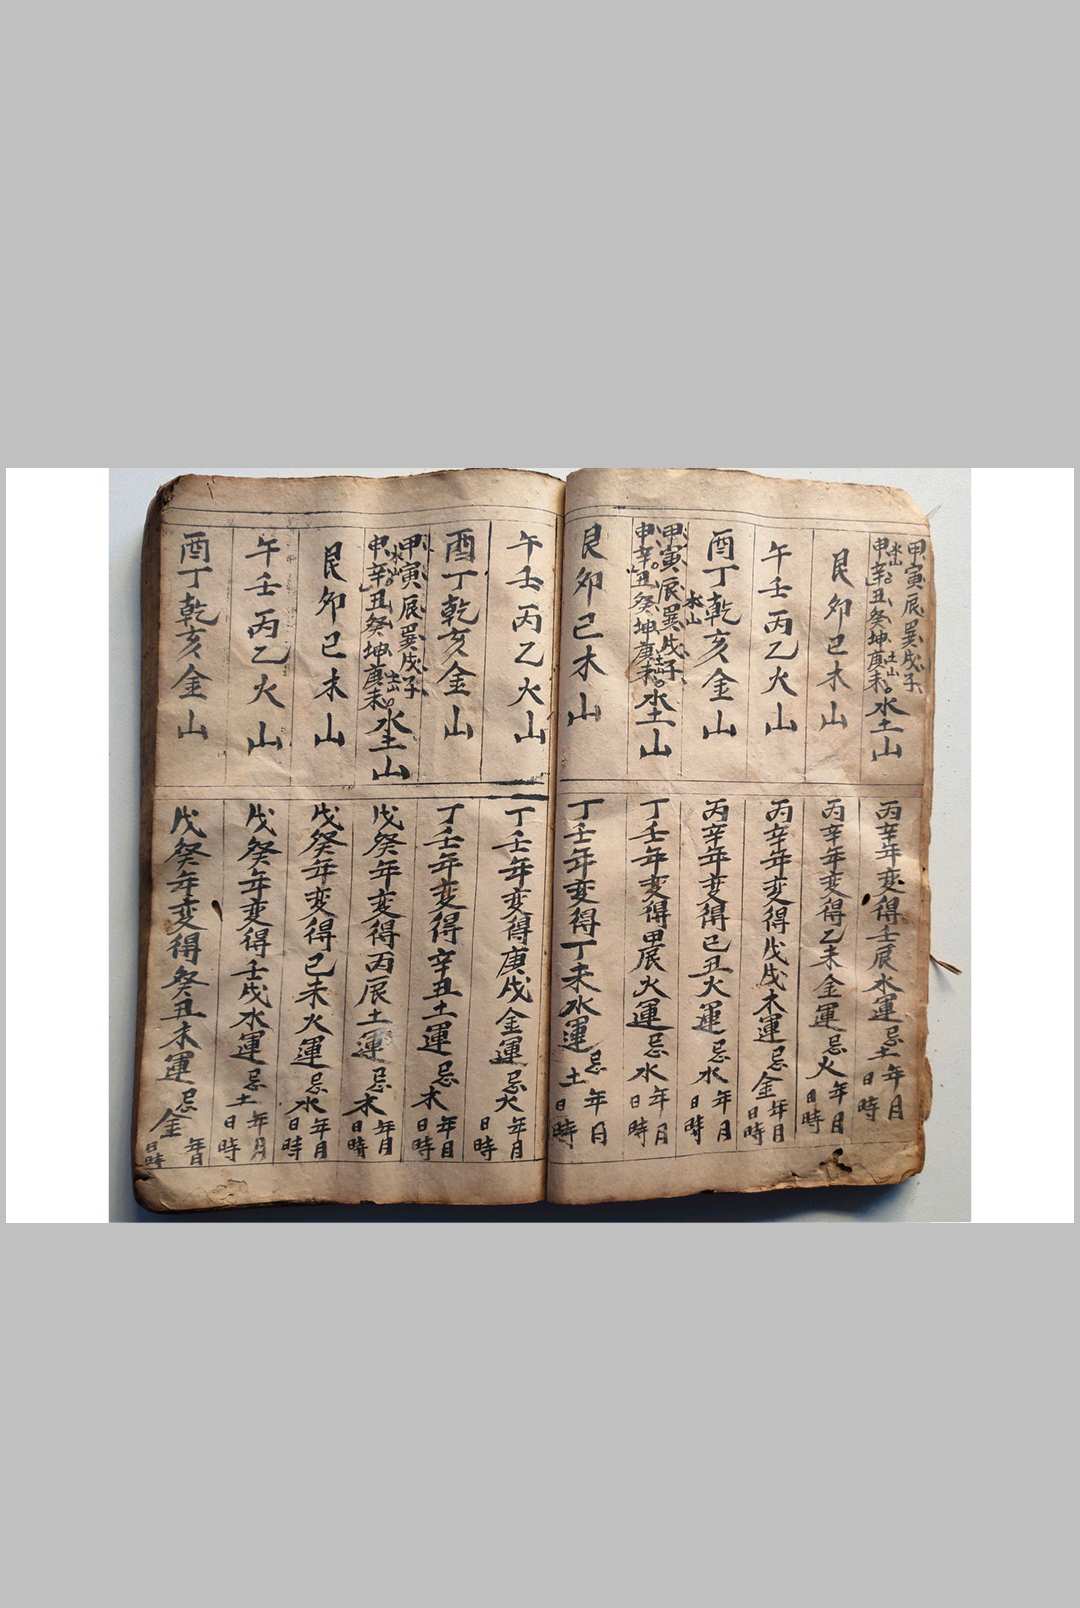 甲寅辰巽戌子
水山
申辛丑癸坤庚未
土山
水土山
丙辛年変得壬辰水運忌土年月日時
艮卯巳木山
丙辛年変得乙未金運忌火年月日時
午壬丙乙火山
丙辛年変得戊戌木運忌金年月日時
酉丁乾亥金山
丙辛年変得己丑火運忌水年月日時
甲寅辰巽戌子
水山
申辛丑癸坤庚未
土山
水土山
丁壬年変得甲辰火運忌水年月日時
艮卯巳木山
丁壬年変得丁未水運忌土年月日時
午壬丙乙火山
丁壬年変得庚戌金運忌火年月日時
酉丁乾亥金山
丁壬年変得辛丑土運忌木年月日時
甲寅辰巽戌子
水山
申辛丑癸坤庚未
土山
水土山
戊癸年変得丙辰土運忌木年月日時
艮卯巳木山
戊癸年変得己未火運忌水年月日時
午壬丙乙火山
戊癸年変得壬戌水運忌土年月日時
酉丁乾亥金山
戊癸年変得癸丑木運忌金年月日時